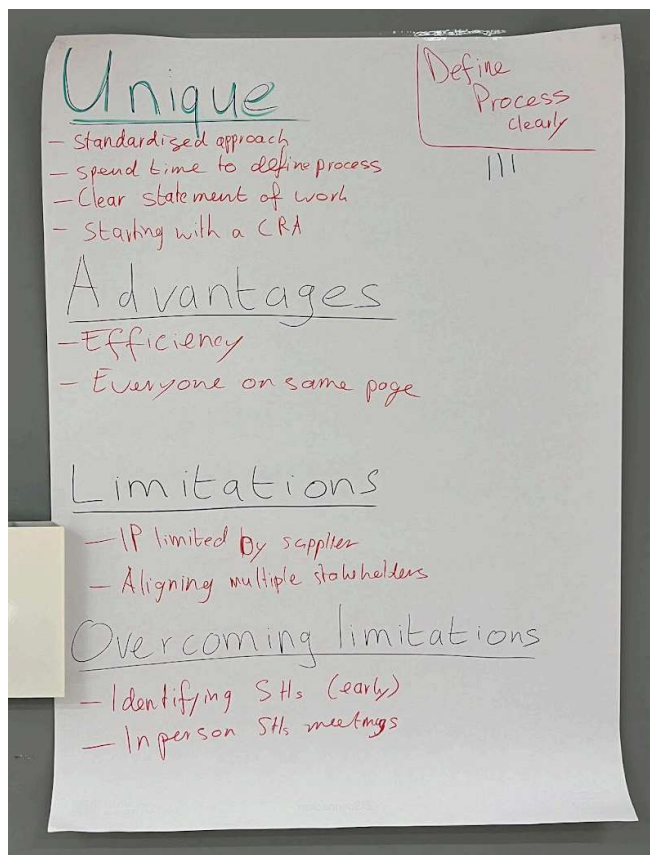 Unique
- Standardised approach
- Spend time to define process
- Clear statement of work
- Starting with a CRA
Define
Process
clearly
III
Advantages
- Efficiency
- Everyone on same page
Limitations
- IP limited by supplier
- Aligning multiple stakeholders
Overcoming limitations
- Identifying SHs (early)
- In person SHs meetings